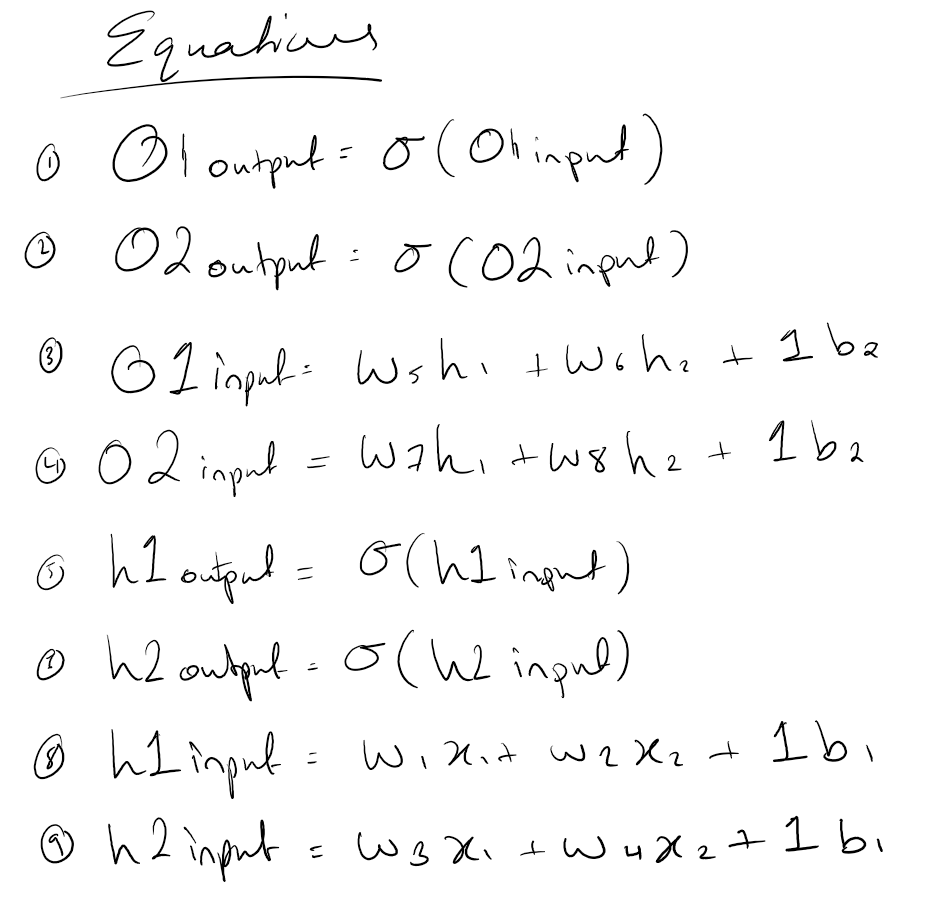 Equations
① O1 output = σ(O1 input)
② O2 output = σ(O2 input)
③ O1 input = w5h1 + w6h2 + 1 b2
④ O2 input = w7h1 + w8h2 + 1 b2
⑤ h1 output = σ(h1 input)
⑦ h2 output = σ(h2 input)
⑧ h1 input = w1x1 + w2x2 + 1 b1
⑨ h2 input = w3x1 + w4x2 + 1 b1